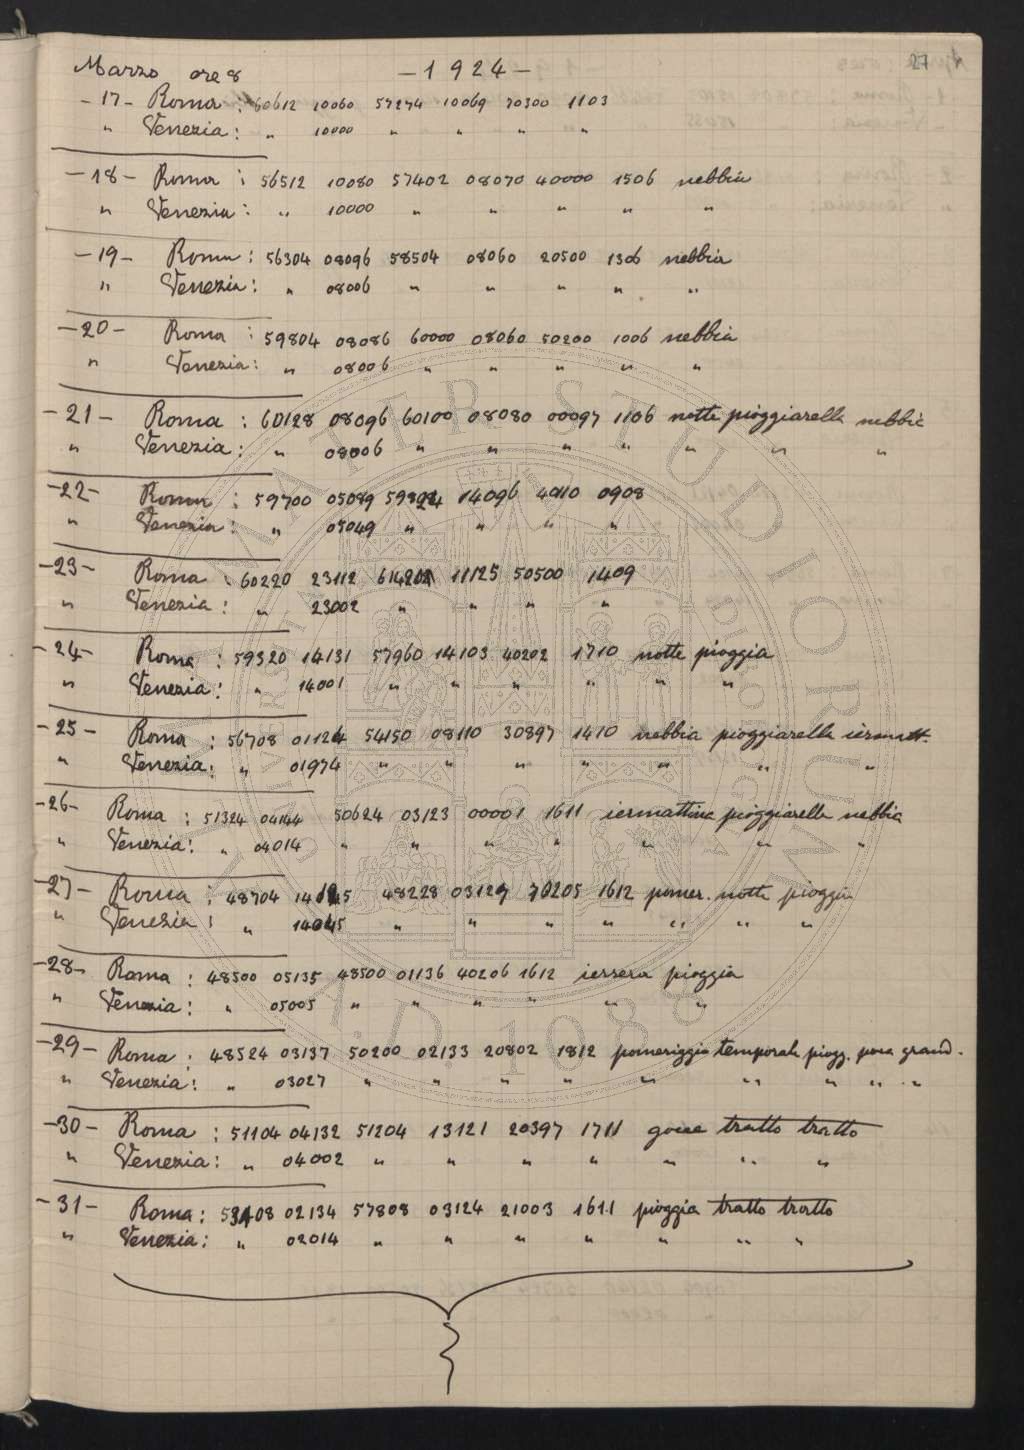 27
Marzo ore 8 — 1924 —
-17- Roma : 60612 10060 57274 10069 70300 1103
" Venezia : " 10000 " " " "
-18- Roma : 56512 10080 57402 08070 40000 1506 nebbia
" Venezia : " 10000 " " " " "
-19- Roma : 56304 08096 58504 08060 20500 1306 nebbia
" Venezia : " 08006 " " " " "
-20- Roma : 59804 08086 60000 08060 50200 1006 nebbia
" Venezia : " 08006 " " " " "
-21- Roma : 60128 08096 60100 08080 00097 1106 notte pioggiarella nebbia
" Venezia : " 08006 " " " " " " "
-22- Roma : 59700 05089 14096 40110 0908
" Venezia : " 05049 " " " "
-23- Roma : 60220 23112 11125 50500 1409
" Venezia : " 23002 " " " "
-24- Roma : 59320 14131 57960 14103 40202 1710 notte pioggia
" Venezia : " 14001 " " " " " "
-25- Roma : 56708 01124 54150 08110 30897 1410 nebbia pioggiarella iermatt.
" Venezia : " 01974 " " " " " " "
-26- Roma : 51324 04144 50624 03123 00001 1611 iermattina pioggiarella nebbia
" Venezia : " 04014 " " " " " " "
-27- Roma : 48704 48228 03129 70205 1612 pomer. notte pioggia
" Venezia : " 14045 " " " " " " "
-28- Roma : 48500 05135 48500 01136 40206 1612 iersera pioggia
" Venezia : " 05005 " " " " " "
-29- Roma : 48524 03137 50200 02133 20802 1812 pomeriggio temporale piogg. poca grand.
" Venezia : " 03027 " " " " " " " " "
-30- Roma : 51104 04132 51204 13121 20397 1711 gocce tratto tratto
" Venezia : " 04002 " " " " " " "
-31- Roma : 02134 57808 03124 21003 1611 pioggia tratto tratto
" Venezia : " 02014 " " " " " " "
ALMA MATER STUDIORUM
A.D. 1088